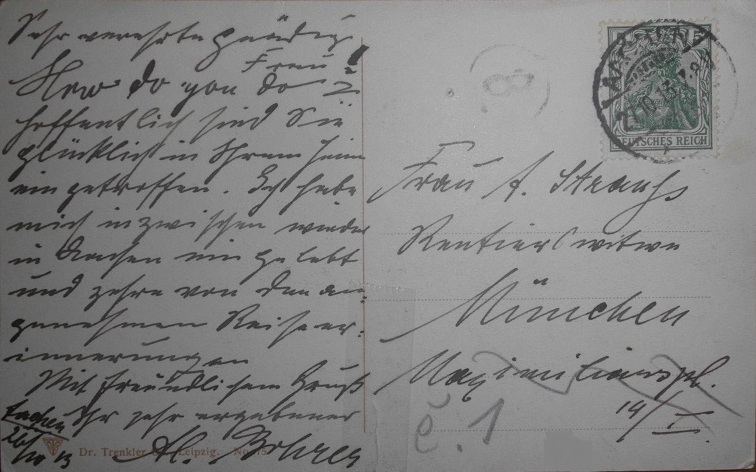 Sehr verehrte gnädige
Frau!
How do you do?
hoffentlich sind Sie
glücklich in Ihrem Heim
eingetroffen. Ich habe
mich inzwischen wieder
in Aachen eingelebt
und zehre von den an-
genehmen Reiseer-
innerungen
Mit freundlichem Gruß
Ihr sehr ergebener
Aachen
10 13
Dr. Trenkler Leipzig.
AACHEN
DEUTSCHES REICH
8
Frau A. Strauss
Rentierswitwe
München
Maximilianspl.
19/I.
č. 1